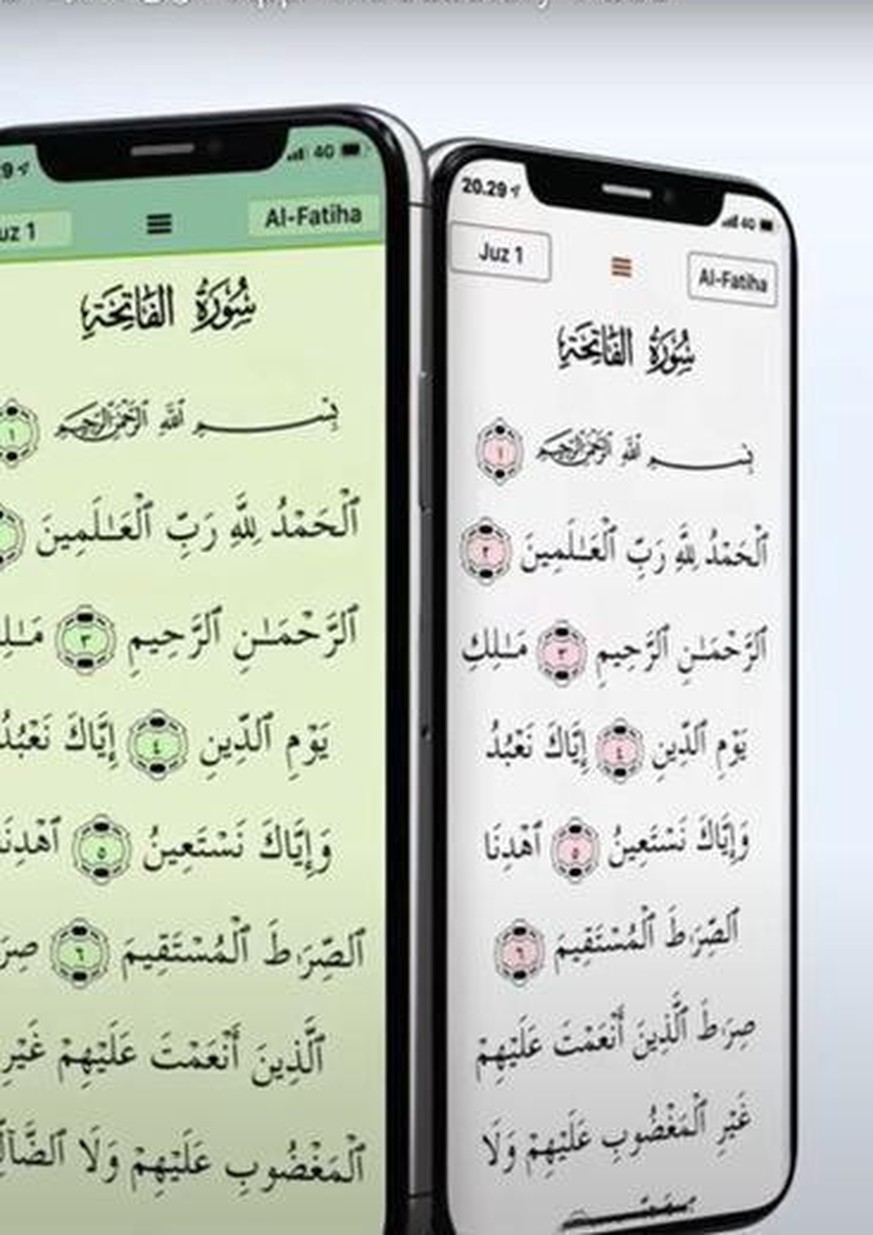 40
uz 1
Al-Fatiha
سُورَةُ الفَاتِحَةِ
بِسْمِ اللَّهِ الرَّحْمَٰنِ الرَّحِيمِ ١
ٱلْحَمْدُ لِلَّهِ رَبِّ ٱلْعَـٰلَمِينَ
ٱلرَّحْمَـٰنِ ٱلرَّحِيمِ ٣ مَـٰلِ
يَوْمِ ٱلدِّينِ ٤ إِيَّاكَ نَعْبُدُ
وَإِيَّاكَ نَسْتَعِينُ ٥ ٱهْدِنَ
ٱلصِّرَٰطَ ٱلْمُسْتَقِيمَ ٦ صِرَ
ٱلَّذِينَ أَنْعَمْتَ عَلَيْهِمْ غَيْرِ
ٱلْمَغْضُوبِ عَلَيْهِمْ وَلَا ٱلضَّآ
20.29
40
Juz 1
Al-Fatiha
سُورَةُ الفَاتِحَةِ
بِسْمِ اللَّهِ الرَّحْمَٰنِ الرَّحِيمِ ١
ٱلْحَمْدُ لِلَّهِ رَبِّ ٱلْعَـٰلَمِينَ ٢
ٱلرَّحْمَـٰنِ ٱلرَّحِيمِ ٣ مَـٰلِكِ
يَوْمِ ٱلدِّينِ ٤ إِيَّاكَ نَعْبُدُ
وَإِيَّاكَ نَسْتَعِينُ ٥ ٱهْدِنَا
ٱلصِّرَٰطَ ٱلْمُسْتَقِيمَ ٦
صِرَٰطَ ٱلَّذِينَ أَنْعَمْتَ عَلَيْهِمْ
غَيْرِ ٱلْمَغْضُوبِ عَلَيْهِمْ وَلَا